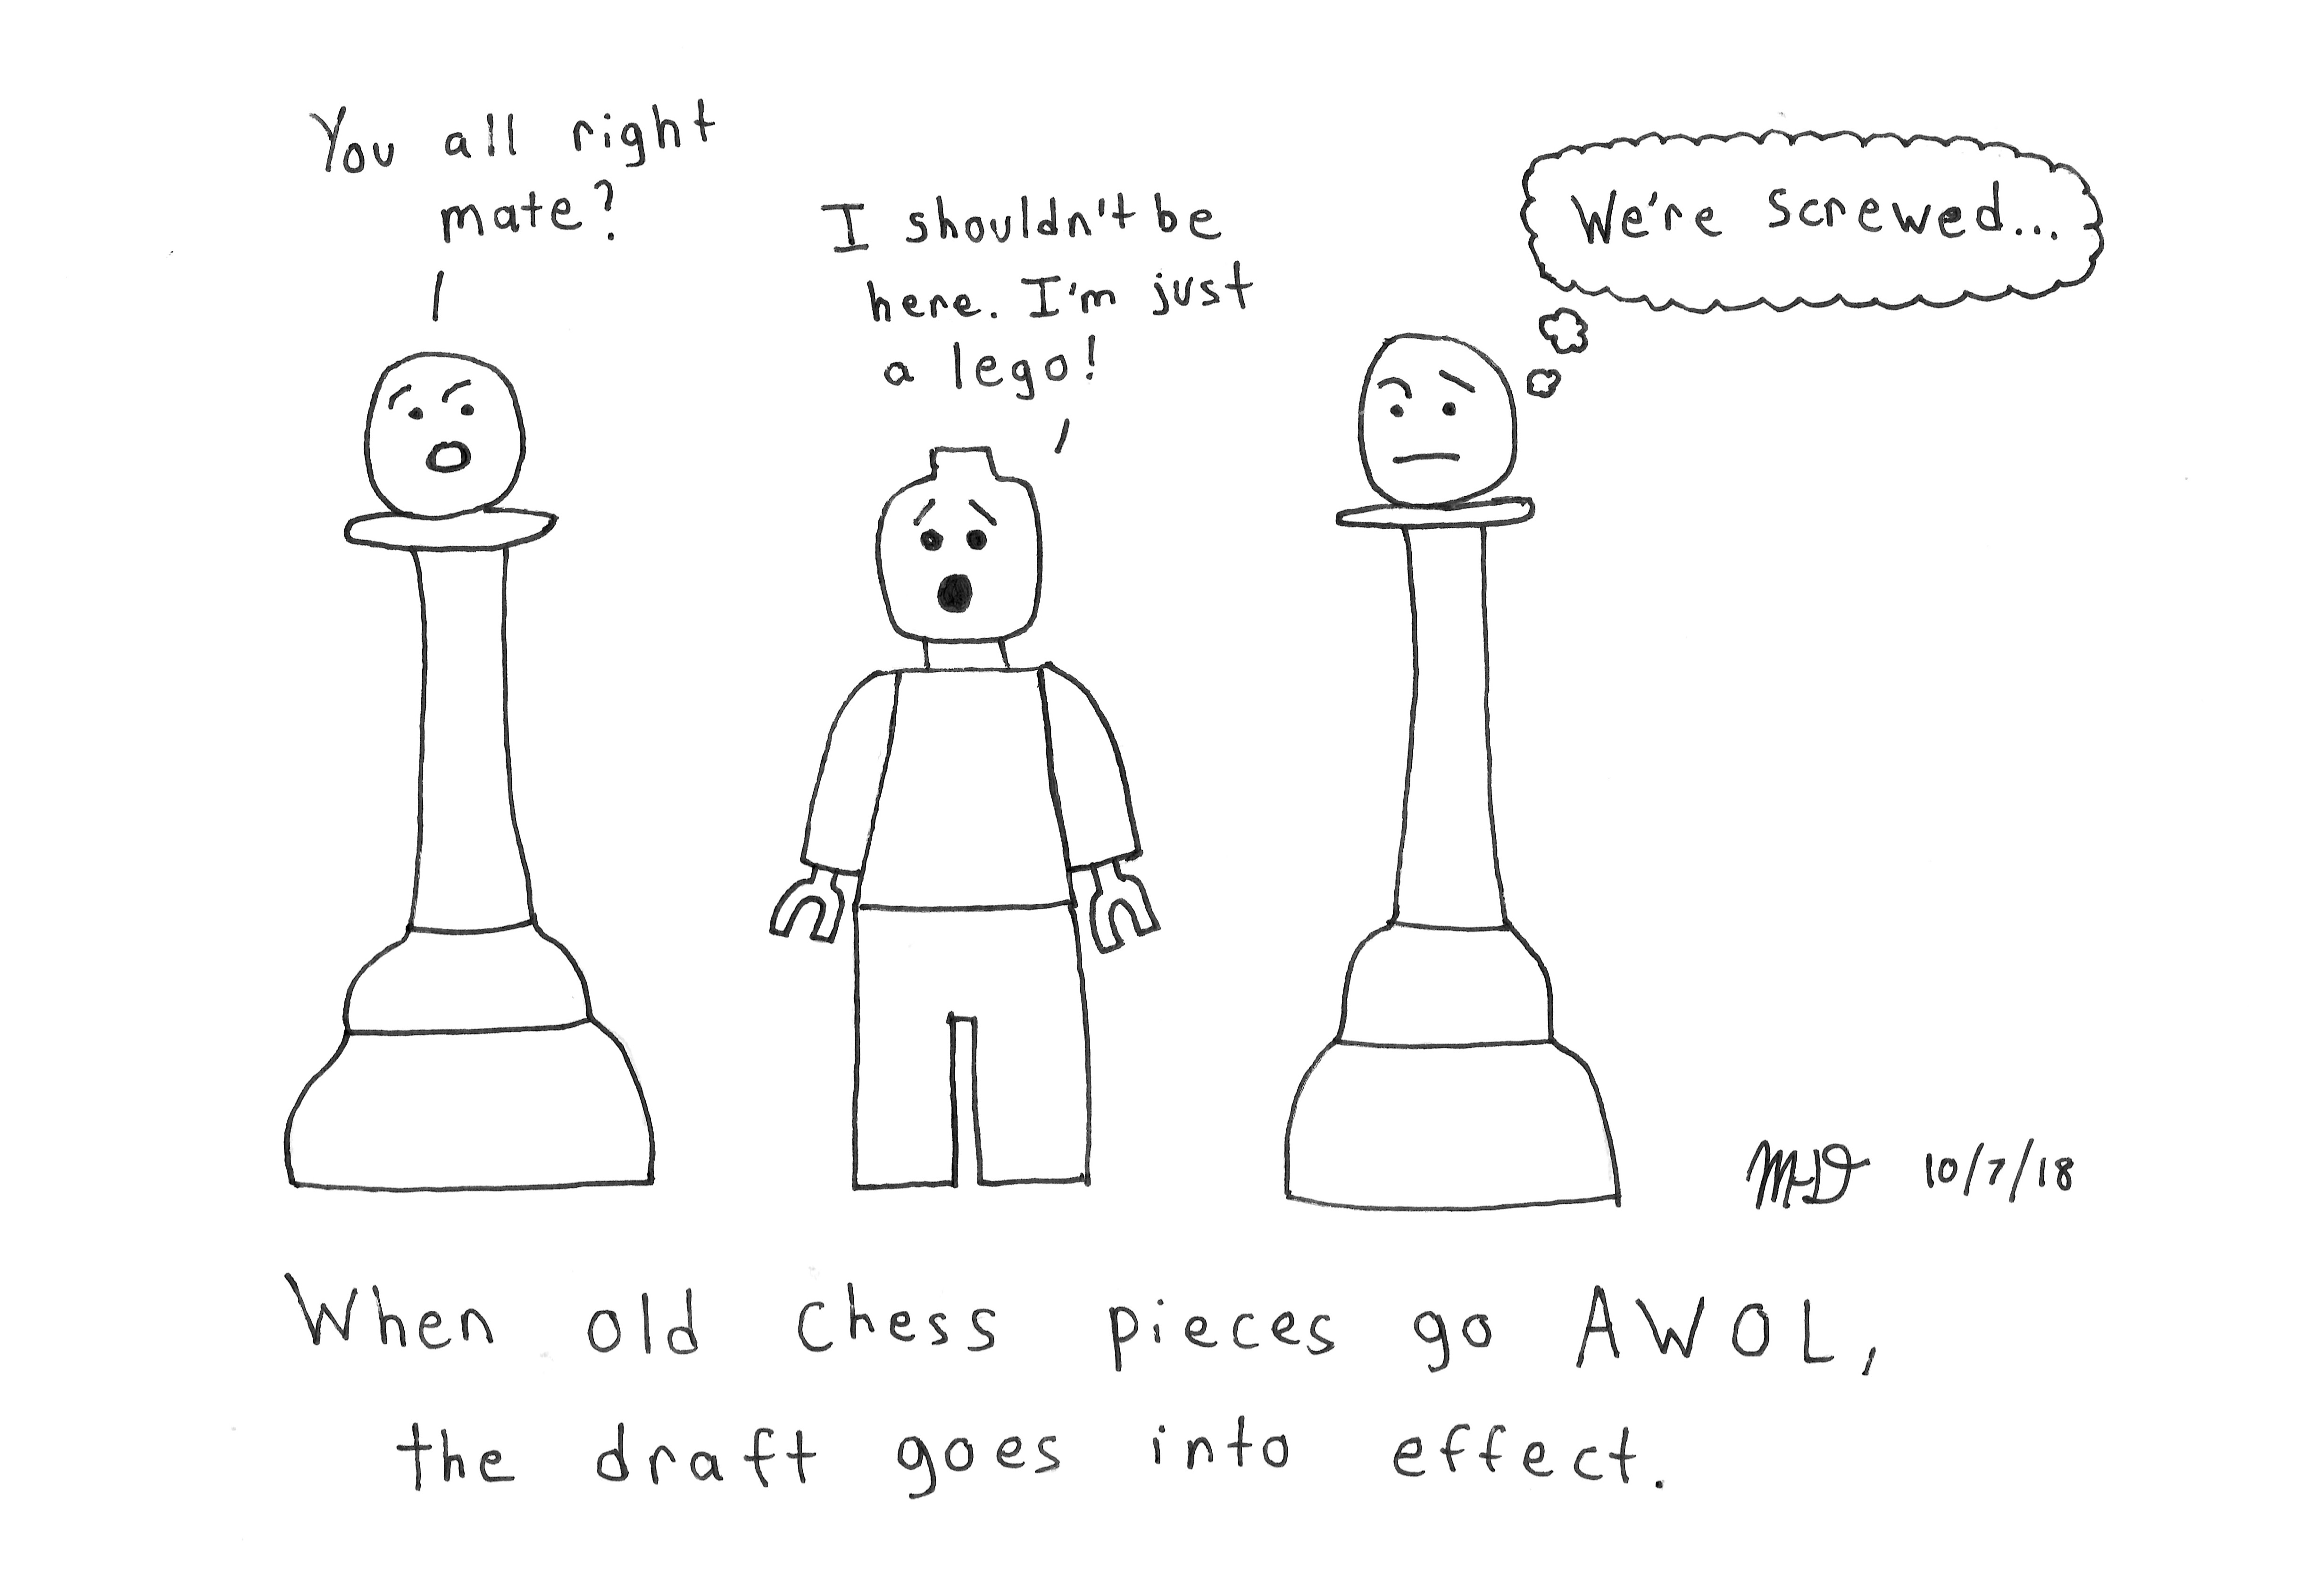 You all right
mate?
I shouldn't be
here. I'm just
a lego!
We're screwed...
MD 10/7/18
When old chess pieces go AWOL,
the draft goes into effect.